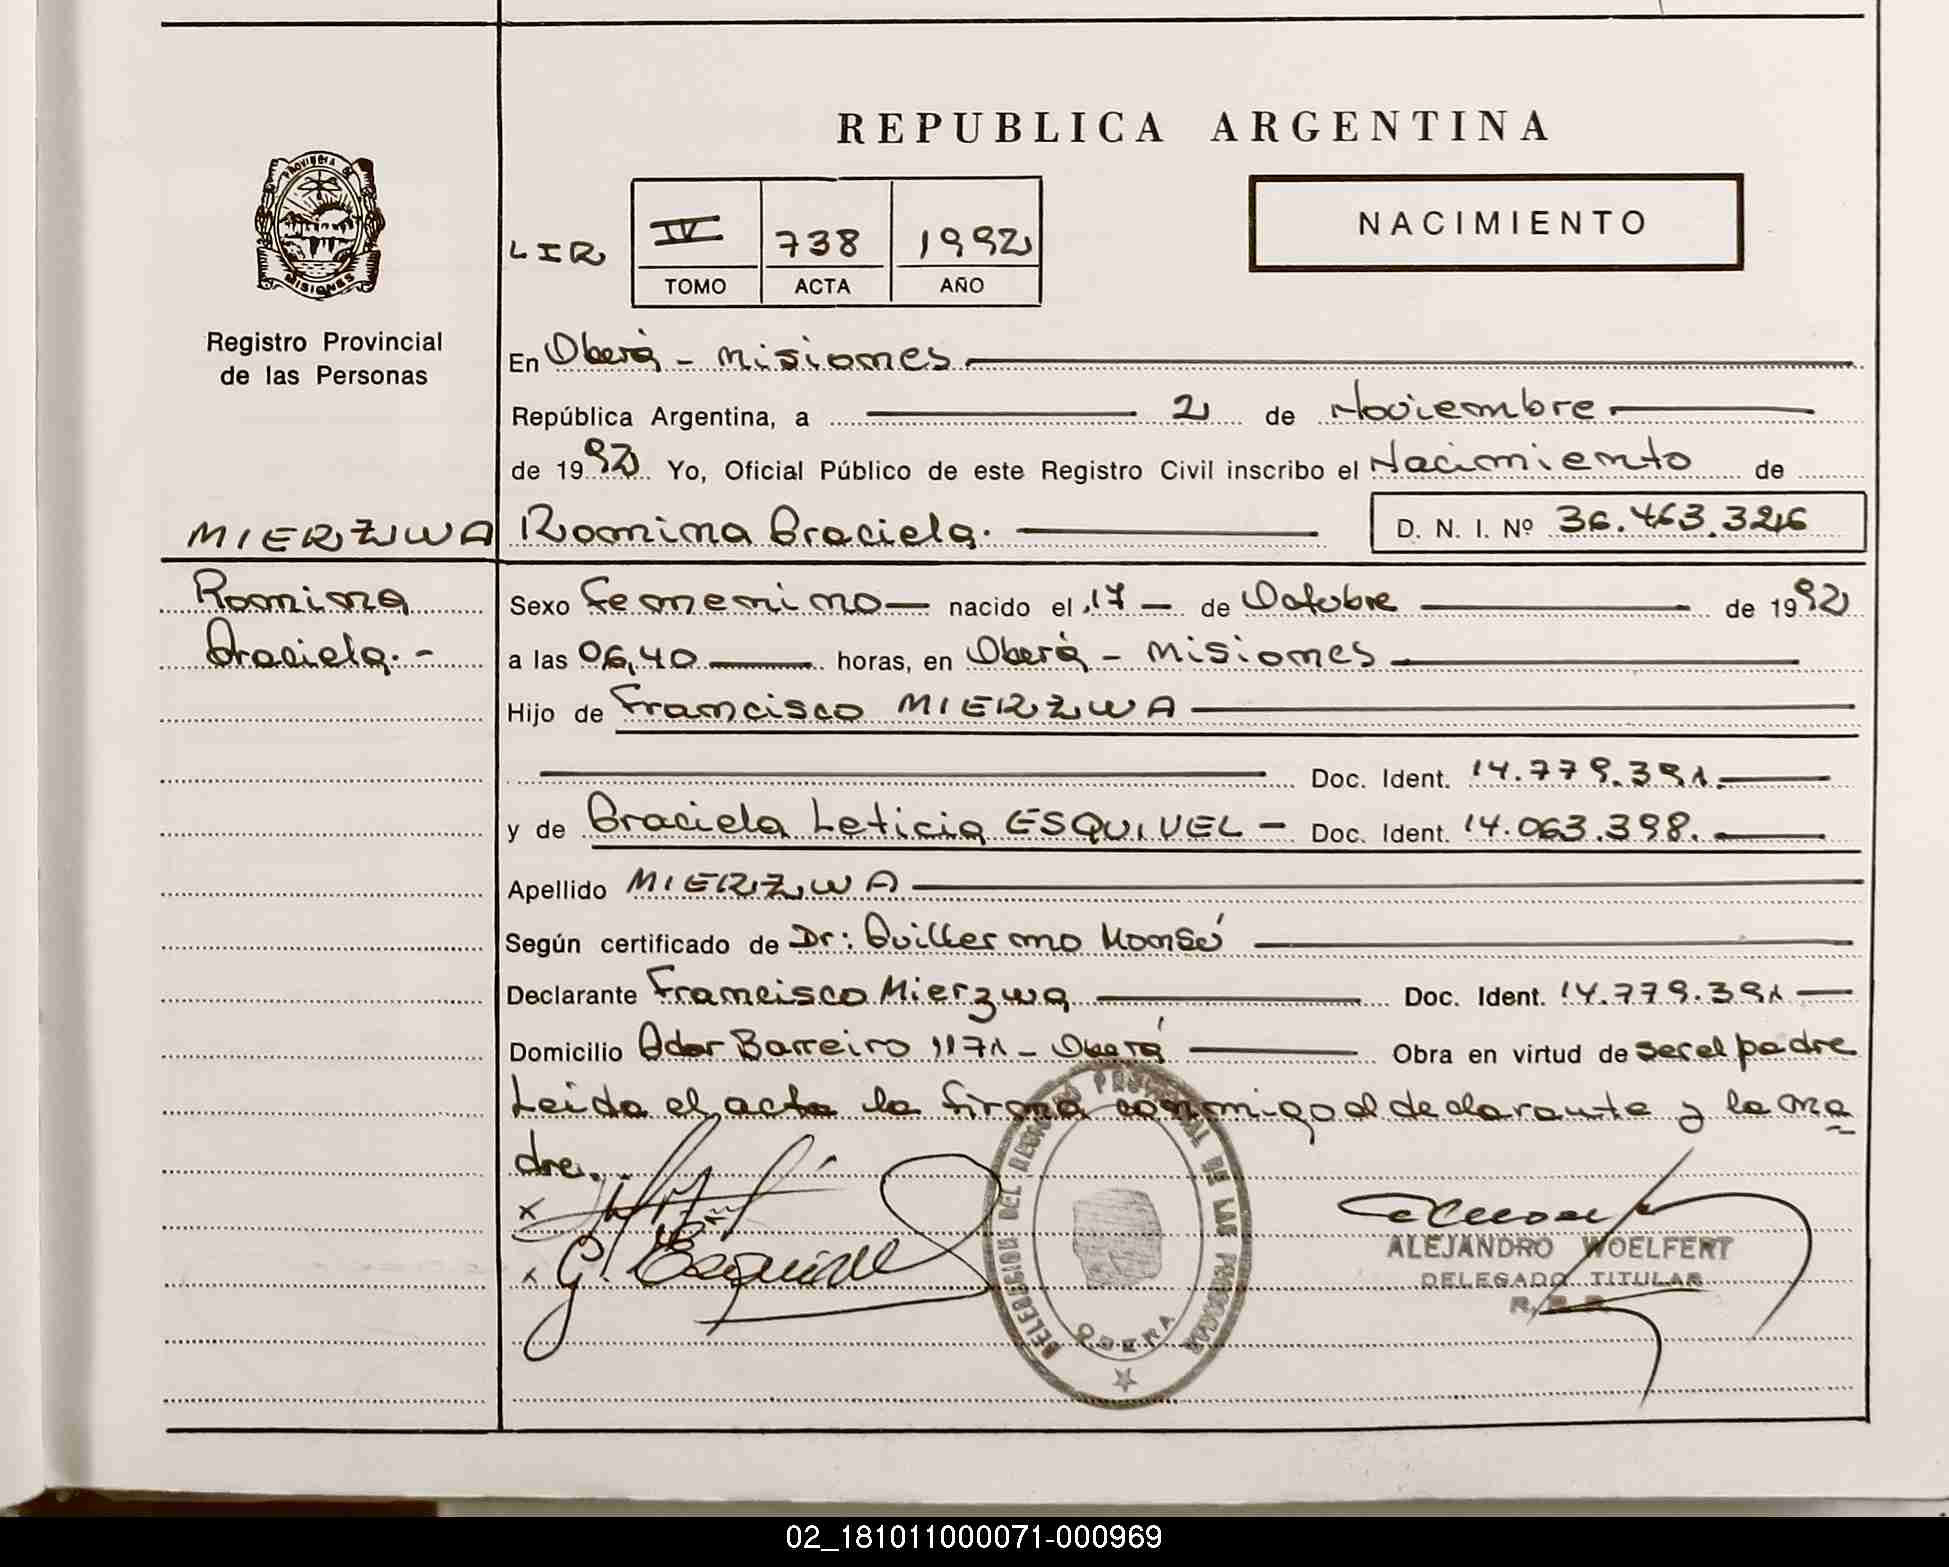 REPUBLICA ARGENTINA
PROVINCIA DE
MISIONES
NACIMIENTO
LIR
IV 738 1992
TOMO ACTA AÑO
Registro Provincial
de las Personas
En Oberá - Misiones
República Argentina, a 2 de Noviembre
de 1992 Yo, Oficial Público de este Registro Civil inscribo el Nacimiento de
MIERZWA Romina Graciela. D. N. I. Nº 36.463.326
Romina
Graciela.-
Sexo Femenino nacido el 17 de Octubre de 1992
a las 06,40 horas, en Oberá - Misiones
Hijo de Francisco MIERZWA
Doc. Ident. 14.779.391.
y de Graciela Leticia ESQUIVEL - Doc. Ident. 14.063.398.
Apellido MIERZWA
Según certificado de Dr: Guillermo
Declarante Francisco Mierzwa Doc. Ident. 14.779.391
Domicilio Ador Barreiro 1171 - Oberá Obra en virtud de ser el padre
Leida el acta la firma conmigo el declarante y la ma
dre.
x
x G. Esquivel
DELEGACION DEL REGISTRO PROVINCIAL DE LAS PERSONAS
OBERA
ALEJANDRO WOELFERT
DELEGADO TITULAR
R. P. P.
02_181011000071-000969